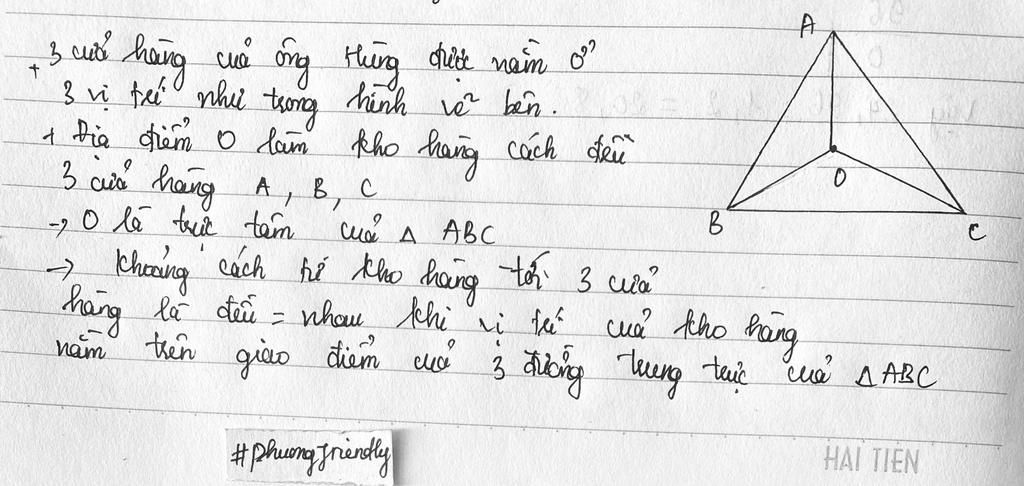 + 3 cửa hàng của ông Hùng được nằm ở
3 vị trí như trong hình vẽ bên.
+ Địa điểm O làm kho hàng cách đều
3 cửa hàng A, B, C
→ O là trực tâm của Δ ABC
→ Khoảng cách từ kho hàng tới 3 cửa
hàng là đều = nhau khi vị trí của kho hàng
nằm trên giao điểm của 3 đường trung trực của Δ ABC
A
O
B
C
#phuongfriendly
HẢI TIẾN